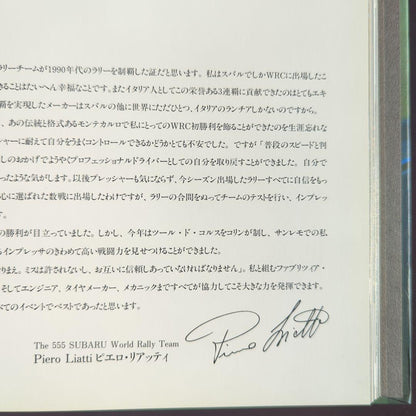 ラリーチームが1990年代のラリーを制覇した証だと思います。私はスバルでしかWRCに出場したこ
きることはたいへん幸福なことです。またイタリア人としてこの栄誉ある3連覇に貢献できたのはとてもエキ
覇を実現したメーカーはスバルの他に世界にただひとつ、イタリアのランチアしかないのですから。
、あの伝統と格式あるモンテカルロで私にとってのWRC初勝利を飾ることができたのを生涯忘れな
シャーに耐えて自分をうまくコントロールできるかどうかとても不安でした。ですが「普段のスピードと判
しのおかげでようやくプロフェッショナルドライバーとしての自分を取り戻すことができました。自分で
ったような気がします。以後プレッシャーも気にならず、今シーズン出場したラリーすべてに自信をもっ
心に選ばれた数戦に出場したわけですが、ラリーの合間をぬってチームのテストを行い、インプレッ
す。
の勝利が目立っていました。しかし、今年はツール・ド・コルスをコリンが制し、サンレモでの私
るインプレッサのきわめて高い戦闘力を見せつけることができました。
りまえ。ミスは許されないし、お互いに信頼しあっていなければなりません」。私と組むファブリツィア・
そしてエンジニア、タイヤメーカー、メカニックまですべてが協力してこそ大きな力を発揮できます。
べてのイベントでベストであったと思います。
The 555 SUBARU World Rally Team
Piero Liatti ピエロ・リアッティ
Piero Liatti